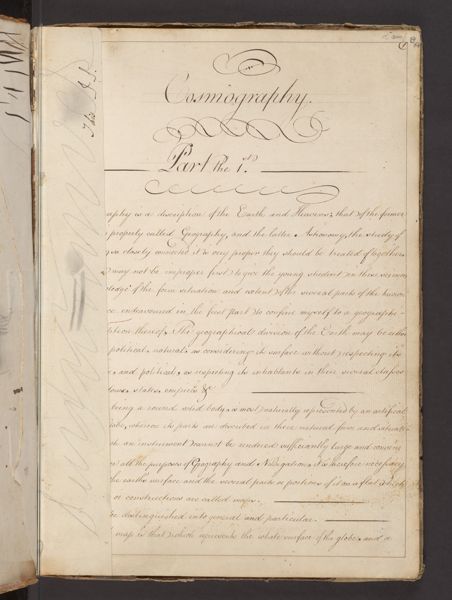 Cosmography.
Part the 1.st
aphy is a description of the Earth and Heavens; that of the former
properly called Geography, and the latter Astronomy, the study of
so closely connected it is very proper they should be treated of together
may not be improper first to give the young student in these sciences
ledge of the form situation and extent of the several parts of the
ce endeavoured in the first part to confine myself to a geographi
ption thereof. The geographical division of the Earth may be either
political, natural, as considering its surface without respecting its
, and political, as respecting its inhabitants in their several
doms, states, empires &c
being a round solid body, is most naturally represented by an artificial
lobe, whereon its parts are described in their natural form and situati
ch an instrument cannot be rendered sufficiently large and conveni
or all the purposes of Geography and Navigation, it is therefore necessary
the earths surface and the several parts or portions of it on a flat
or constructions are called maps.
be distinguished into general and particular.
map is that which represents the whole surface of the globe, and a